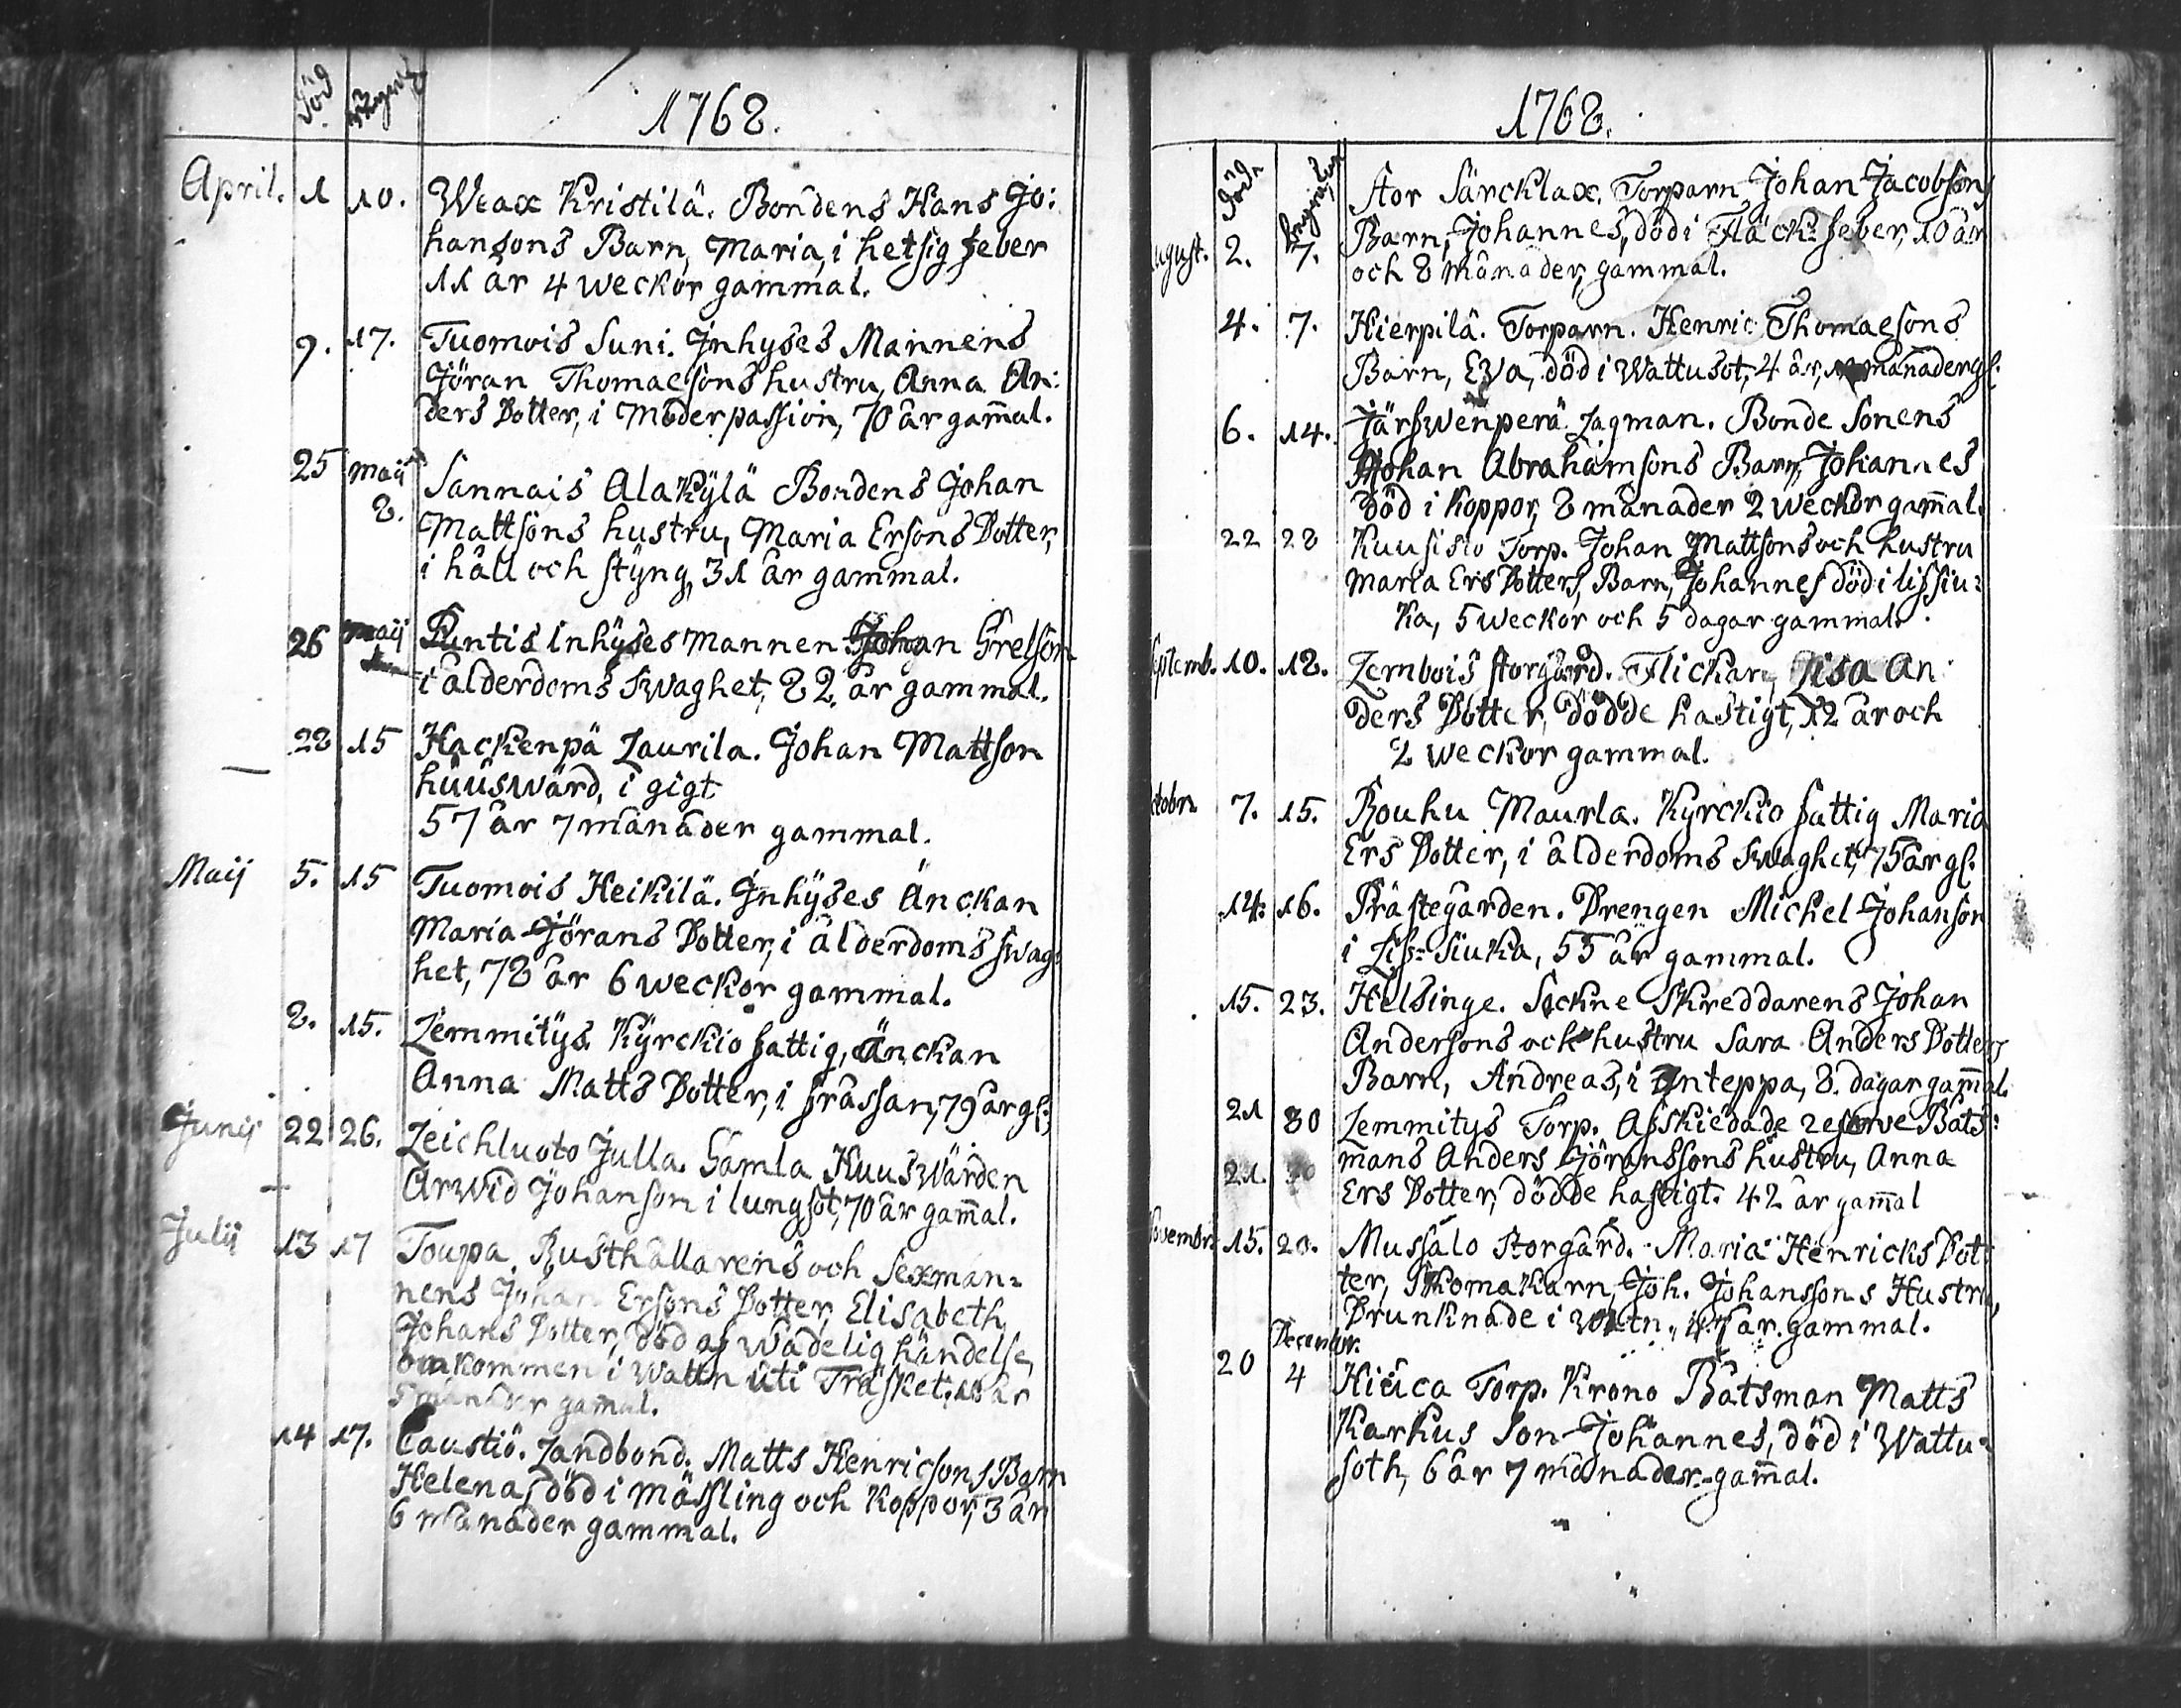 Död
1768.
April. 1 10. Weax Kristilä. Bondens Hans Jo:
hansons Barn, Maria, i hetsig feber
11 år 4 weckor gammal.
9. 17. Tuomois Suni. Inhyses Mannens
Jöran Thomaesons hustru, Anna An:
ders Dotter, i Moderpassion, 70 år gam̄al.
25 Maij 8. Sannais Alakylä Bondens Johan
Mattsons hustru, Maria Ersons Dotter,
i håll och styng, 31 år gammal.
26 Maij Puntis Inhyses mannen Johan Grelson
i ålderdoms Swaghet, 82 år gammal.
28 15 Hackenpä Laurila. Johan Mattson
huuswärd, i gigt
57 år 7 månader gammal.
Maij 5. 15 Tuomois Heikilä. Inhyses Änckan
Maria Jörans Dotter, i ålderdoms swag:
het, 78 år 6 weckor gammal.
8. 15. Lemmitys Kyrckio fattig, änckan
Anna Matts Dotter, i frässan, 79 år gl:
Junij 22 26. Leichluoto Julla. Gamla Huuswärden
Arwid Johanson i lungsot, 70 år gam̄al.
Julij 13 17 Toupa. Rusthållarens och Sexman=
nens Johan Ersons Dotter, Elisabeth
Johans Dotter, död af wådelig händelse,
omkommen i Wattn uti Träsket, år
månader gamal.
14 17. Caustiö. Landbond. Matts Henricsons Barn
Helena, död i mässling och Koppor, 3 år
6 månader gammal.
1768.
Död
Stor Särcklax. Torparn Johan Jacobsons
August. 2. 7. Barn, Johannes, död i Fläck: feber, 10 år
och 8 månader, gammal.
4. 7. Hierpilä. Torparn. Henric Thomaesons
Barn, Eva, död i Wattusot, 4 år, månader gl:
6. 14. Järswenperä Lagman. Bonde Sonens
Johan Abrahamsons Barn, Johannes
död i Koppor, 8 månader 2 weckor gam̄al.
22 28 Kuusisto Torp. Johan Mattsons och hustru
Maria Ers Dotters, Barn, Johannes död i lissiu:
ka, 5 weckor och 5 dagar gammal.
Septemb. 10. 18. Lembois storgård. Flickan, Lisa An:
ders Dotter, dödde hastigt, 12 år och
2 weckor gammal.
Octobr. 7. 15. Rouhu Maurla. Kyrckio fattig Maria
Ers Dotter, i ålderdoms Swaghet, 75 år gl:
14. 16. Prästegården. Drengen Michel Johanson
i Liss=Siuka, 55 år gammal.
15. 23. Helsinge. Sockne Skreddarens Johan
Andersons och hustru Sara Anders Dotters
Barn, Andreas, i Anteppa, 8. dagar gam̄al.
21 30 Lemmitys Torp. Afskiedade reserve Båts:
21. 30 mans Anders Jöranssons hustru, Anna
Ers Dotter, dödde hastigt. 42 år gam̄al
Novembr. 15. 20. Mussalo Storgård. Maria Henricks Dot:
ter, Thomakarn, Joh. Johanssons Hustru,
Drunknade i Watn, 47 år gammal.
Decembr.
20 4 Hiuca Torp. Krono Båtsman Matts
Karhus Son Johannes, död i Wattu=
soth, 6 år 7 månader gam̄al.